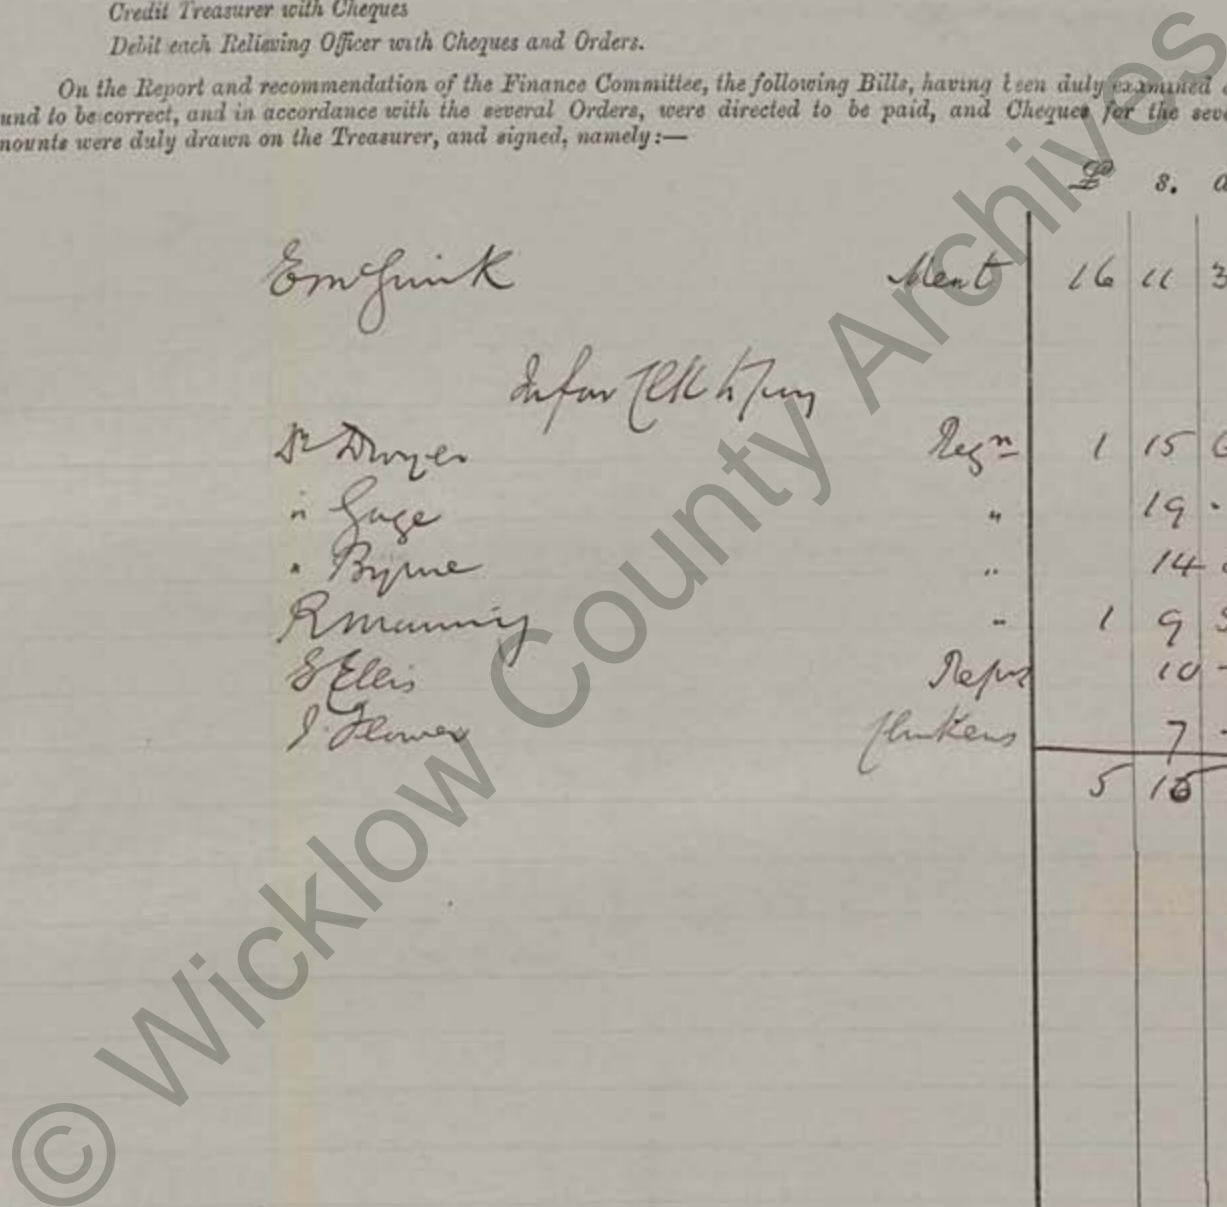 Credit Treasurer with Cheques
Debit each Relieving Officer with Cheques and Orders.
On the Report and recommendation of the Finance Committee, the following Bills, having been duly examined
und to be correct, and in accordance with the several Orders, were directed to be paid, and Cheques for the seve
mounts were duly drawn on the Treasurer, and signed, namely:—
£ s. d
16 11 3
Dr Dwyer Regn 1 15 6
" Gage " 19 -
" Byrne " 14
R Manning " 1 9
Ellis Reprs 10 -
J. Flower 7 -
5 15
© Wicklow County Archives